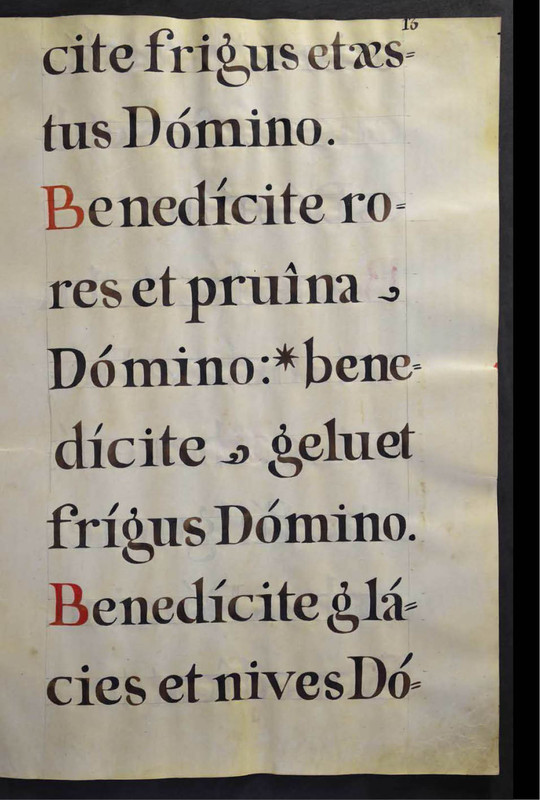 13
cite frigus et æs=
tus Dómino.
Benedícite ro=
res et pruîna
Dómino:*bene=
dícite gelu et
frígus Dómino.
Benedícite glá=
cies et nives Dó=